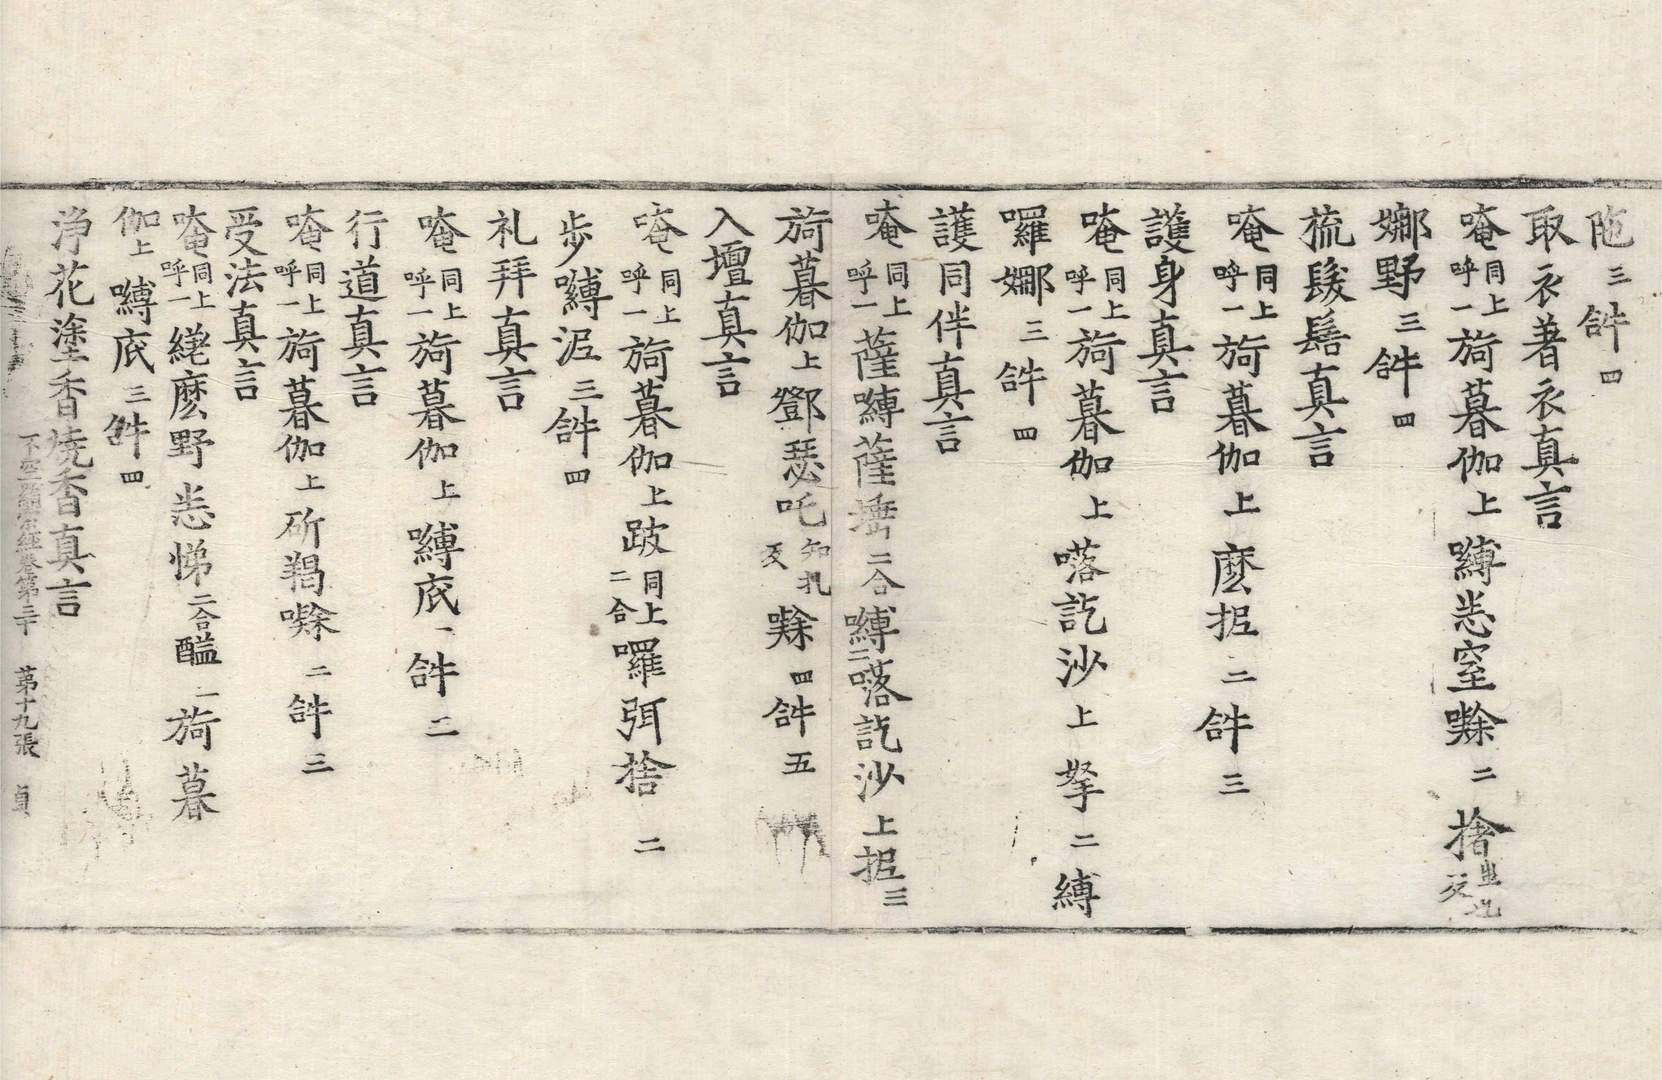 陁三𤙖四
取衣著衣真言
唵同上呼一旖暮伽上嚩恙窒㗚二捨
㜸野三𤙖四
梳髮髻真言
唵同上呼一旖暮伽上麼抳二𤙖三
護身真言
唵同上呼一旖暮伽上㗉訖沙上拏二縛
囉㜸三𤙖四
護同伴真言
唵同上呼一薩嚩薩埵二合嚩二㗉訖沙上抳三
旖暮伽上鄧瑟吒知礼反㗚四𤙖五
入壇真言
唵同上呼一旖暮伽上跛同上二合囉弭捨二
步嚩泥三𤙖四
礼拜真言
唵同上呼一旖暮伽上嚩底一𤙖二
行道真言
唵同上呼一旖暮伽上斫羯㗚二𤙖三
受法真言
唵同上呼一縒麽野恙悌二合醯一旖暮
伽上嚩底三𤙖四
淨花塗香燒香真言
不空羂索經卷第三十 第十九張 貞